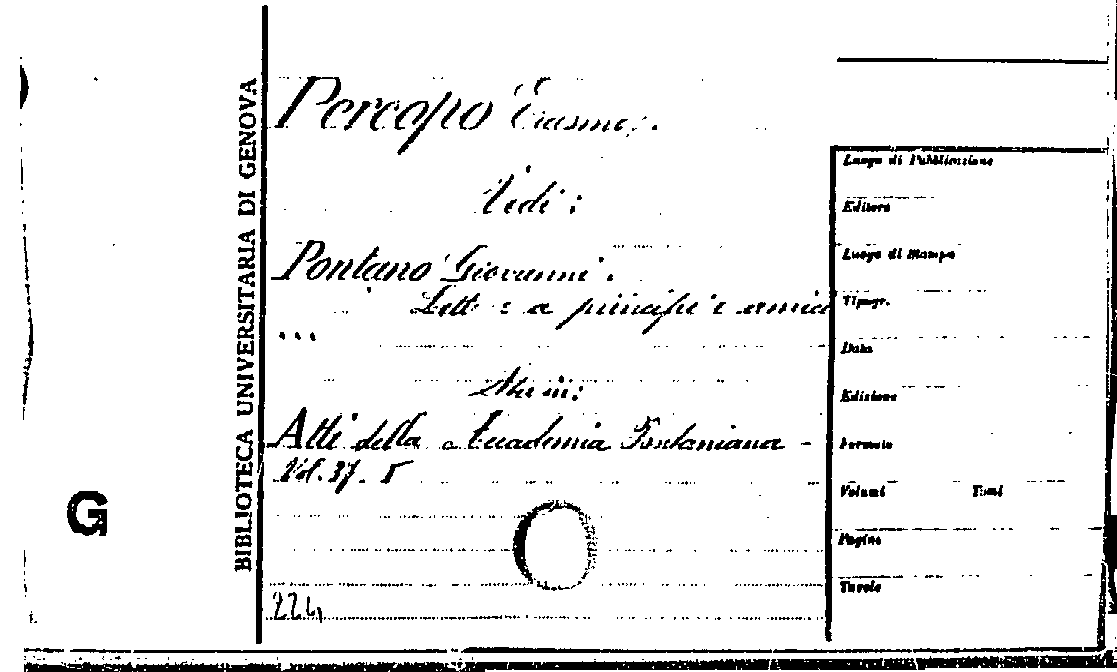 BIBLIOTECA UNIVERSITARIA DI GENOVA
G
Percopo Erasmo.
Vedi:
Pontano Giovanni.
Lettere a principi e amici
...
Atti della Accademia Pontaniana -
Vol. 37. 5
224
Luogo di Pubblicazione
Editore
Luogo di Stampa
Tipogr.
Data
Edizione
Formato
Volumi Tomi
Pagine
Tavole